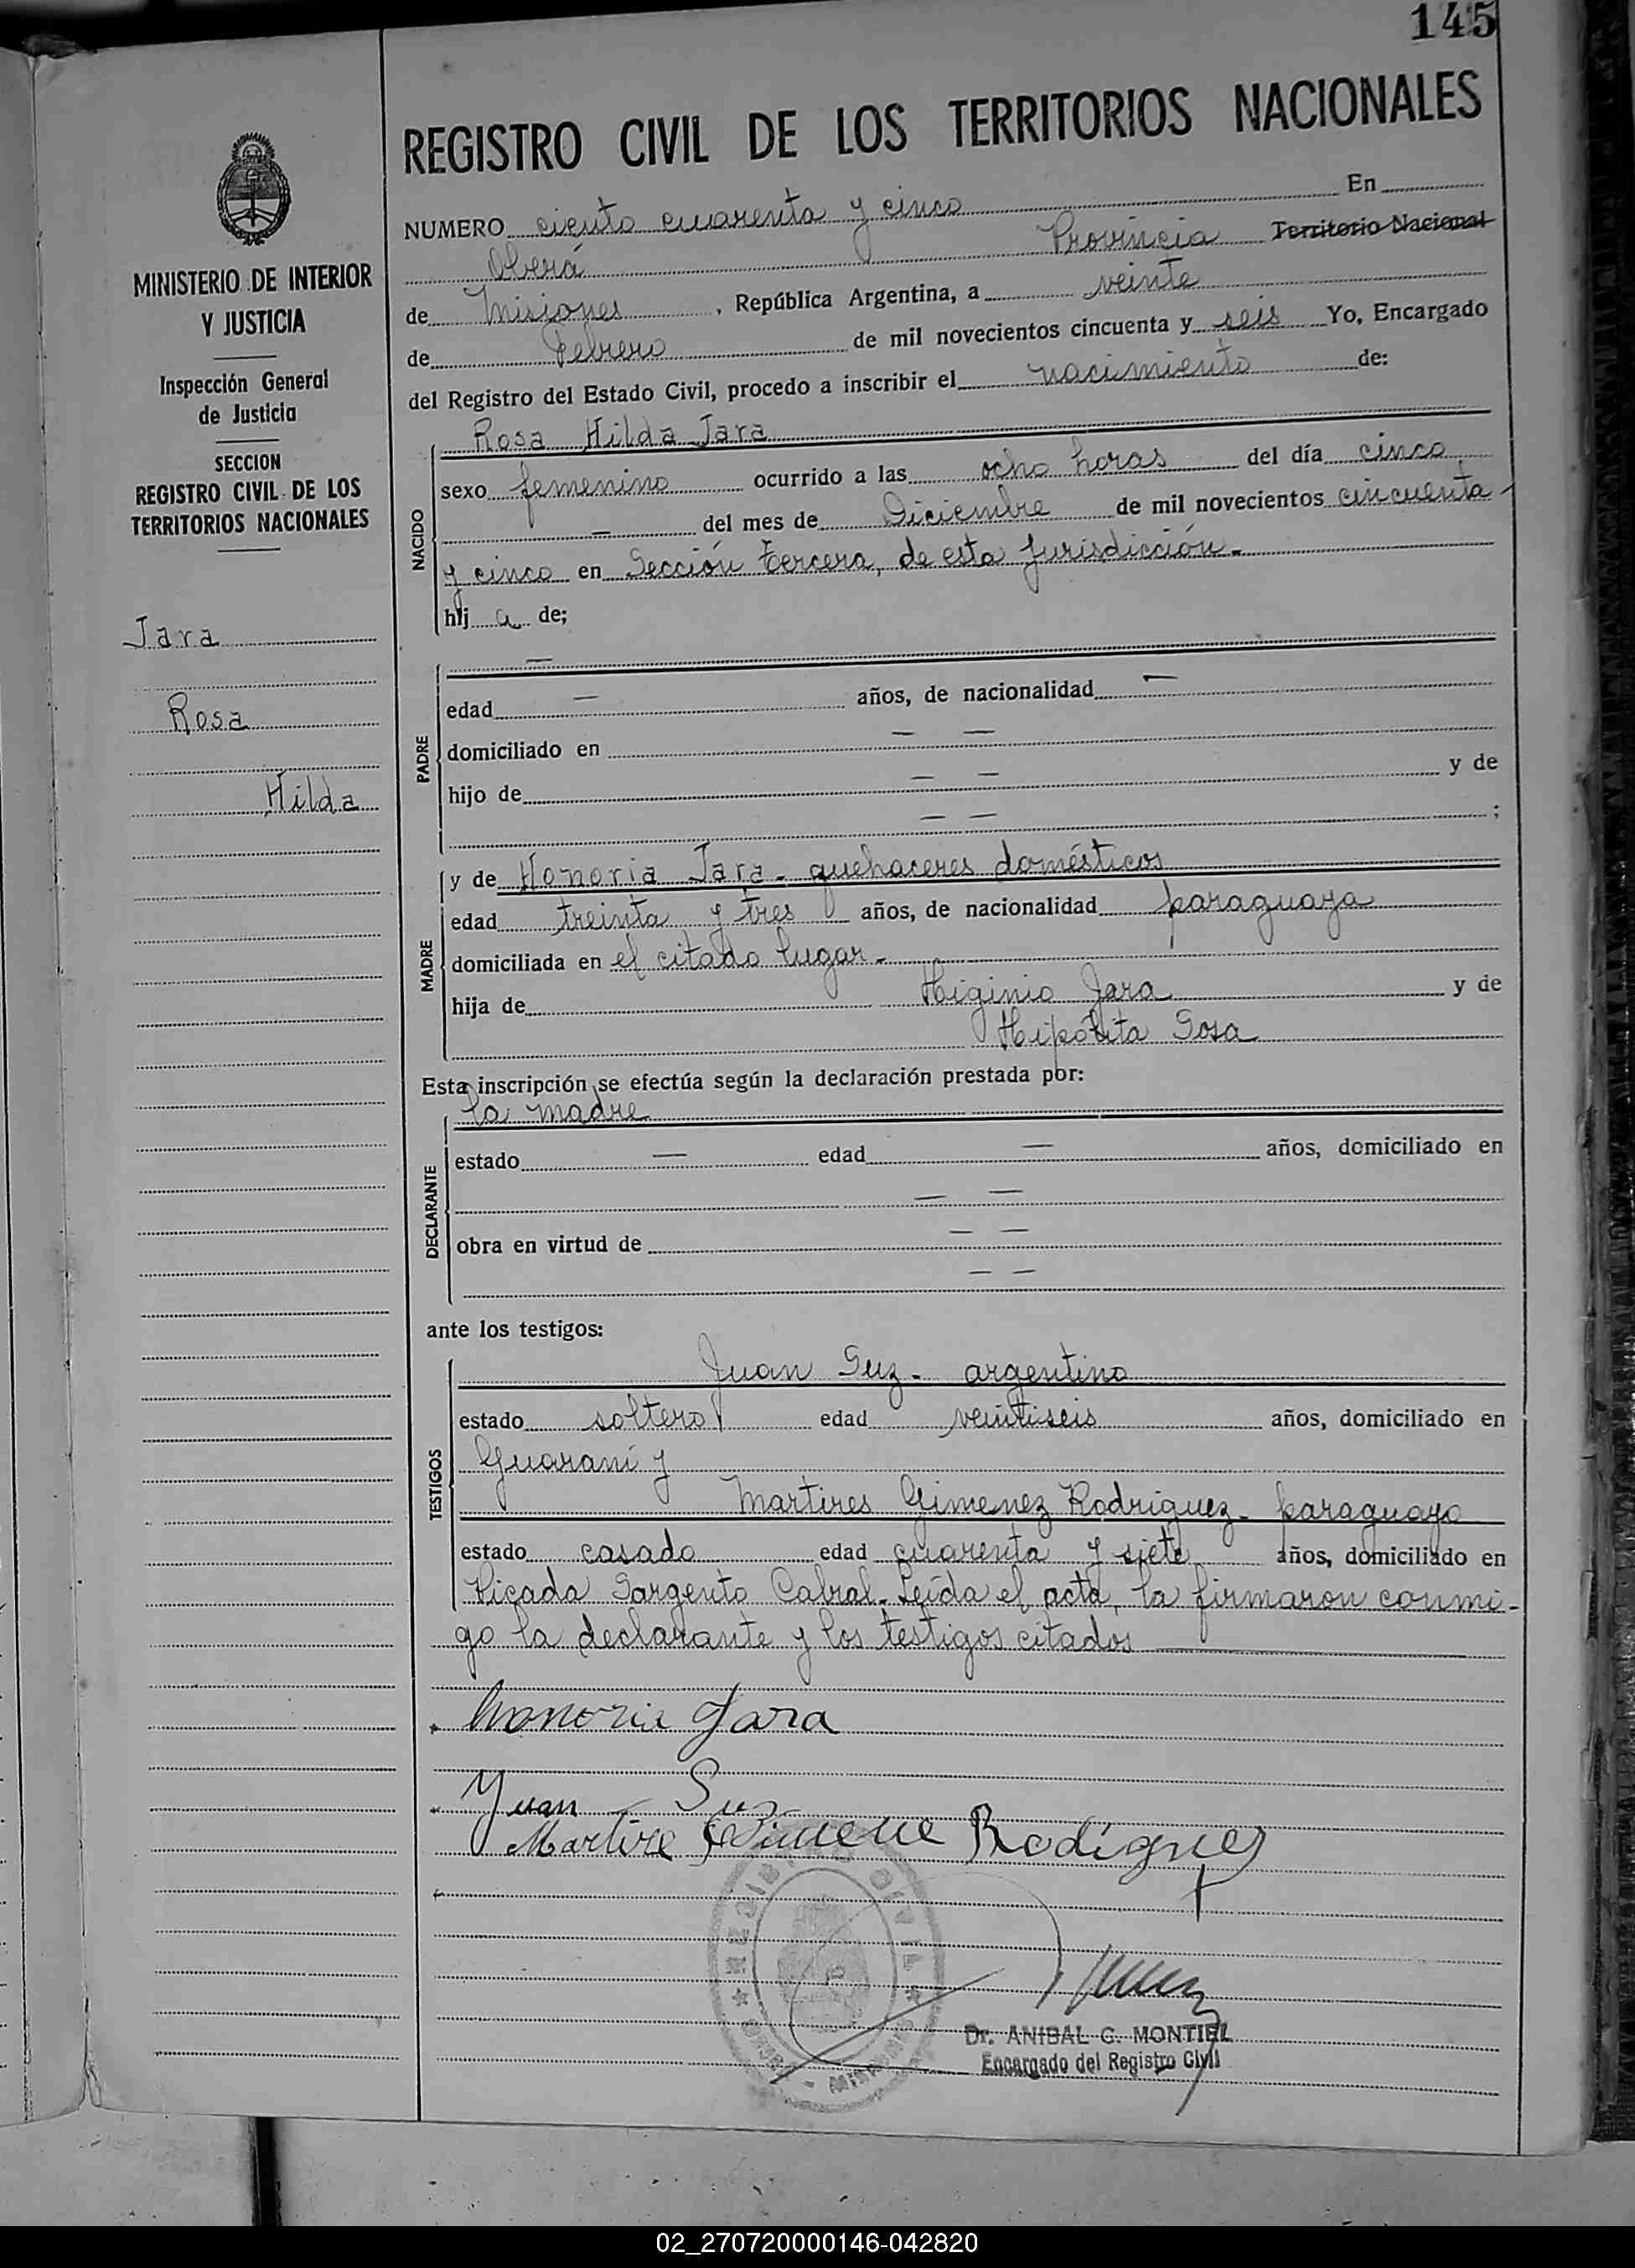 145
REGISTRO CIVIL DE LOS TERRITORIOS NACIONALES
MINISTERIO DE INTERIOR
Y JUSTICIA
Inspección General
de Justicia
SECCION
REGISTRO CIVIL DE LOS
TERRITORIOS NACIONALES
Jara
Rosa
Hilda
NUMERO ciento cuarenta y cinco En
Oberá Provincia Territorio Nacional
de Misiones, República Argentina, a veinte
de Febrero de mil novecientos cincuenta y seis Yo, Encargado
del Registro del Estado Civil, procedo a inscribir el nacimiento de:
NACIDO
Rosa Hilda Jara
sexo femenino ocurrido a las ocho horas del día cinco
— del mes de Diciembre de mil novecientos cincuenta
y cinco en Sección tercera, de esta jurisdicción.-
hij a de;
PADRE
—
edad — años, de nacionalidad —
domiciliado en — —
hijo de — — y de
— — ;
MADRE
y de Honoria Jara - quehaceres domésticos
edad treinta y tres años, de nacionalidad paraguaya
domiciliada en el citado lugar.-
hija de Higinio Jara y de
Hipólita Sosa
Esta inscripción se efectúa según la declaración prestada por:
DECLARANTE
la madre
estado — edad — años, domiciliado en
— —
obra en virtud de — —
— —
ante los testigos:
TESTIGOS
Juan Suz - argentino
estado soltero edad veintiseis años, domiciliado en
Guaraní y
Martires Gimenez Rodriguez - paraguayo
estado casado edad cuarenta y siete años, domiciliado en
Picada Sargento Cabral. Leída el acta, la firmaron conmi-
go la declarante y los testigos citados
honoria Jara
Juan Suz
Martire Gimene Rodígues
REGISTRO CIVIL
MISIONES
Dr. ANIBAL G. MONTIEL
Encargado del Registro Civil
02_270720000146-042820